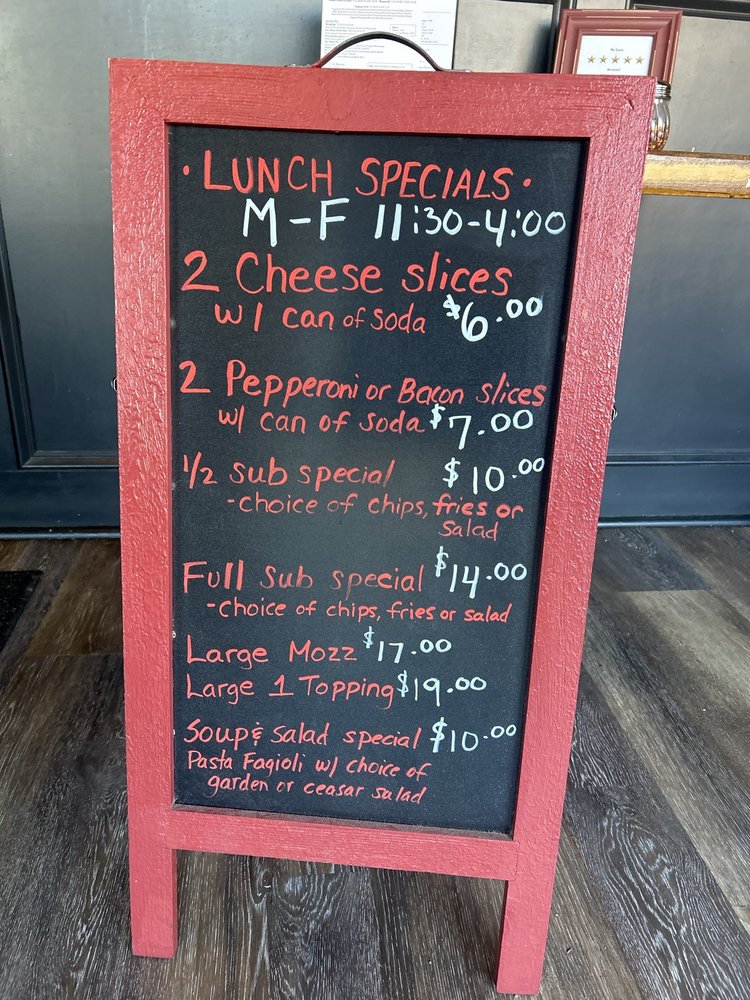 • LUNCH SPECIALS •
M-F 11:30-4:00
2 Cheese slices
w/ can of soda $6.00
2 Pepperoni or Bacon slices
w/ can of soda $7.00
1/2 sub special $10.00
-choice of chips, fries or
salad
Full sub special $14.00
-choice of chips, fries or salad
Large Mozz $17.00
Large 1 Topping $19.00
Soup & salad special $10.00
Pasta Fagioli w/ choice of
garden or ceasar salad